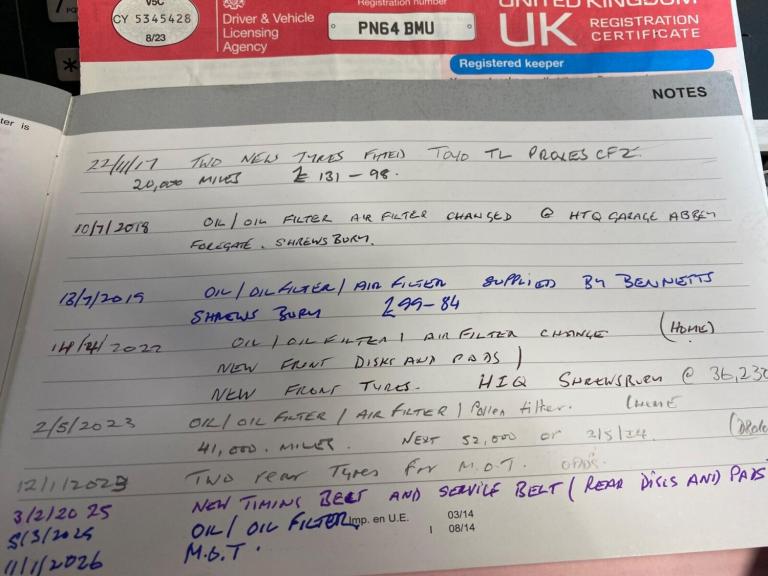 V5C
CY 5345428
8/23
Driver & Vehicle
Licensing
Agency
Registration number
PN64 BMU
UNITED KINGDOM
UK REGISTRATION
CERTIFICATE
Registered keeper
ter is
NOTES
22/11/17 TWO NEW TYRES FITTED TOYO TL PROXES CF2.
20,000 MILES £131-98.
10/7/2018 OIL/OIL FILTER AIR FILTER CHANGED @ HTQ GARAGE ABBEY
FOREGATE. SHREWSBURY.
13/7/2019 OIL/OIL FILTER/AIR FILTER SUPPLIED BY BENNETTS
SHREWSBURY £99-84
14/4/2022 OIL/OIL FILTER/AIR FILTER CHANGE (HOME)
NEW FRONT DISKS AND PADS)
NEW FRONT TYRES. HIQ SHREWSBURY @ 36,230
2/5/2023 OIL/OIL FILTER/AIR FILTER/Pollen filter. (HOME
41,000. MILES. NEXT 52,000 or 2/5/24.
12/1/2023 TWO rear Tyres for M.O.T.
3/2/2025 NEW TIMING BELT AND SERVICE BELT (REAR DISCS AND PADS
5/3/2025 OIL/OIL FILTER
Imp. en U.E. 03/14
1 08/14
11/1/2026 M.O.T.